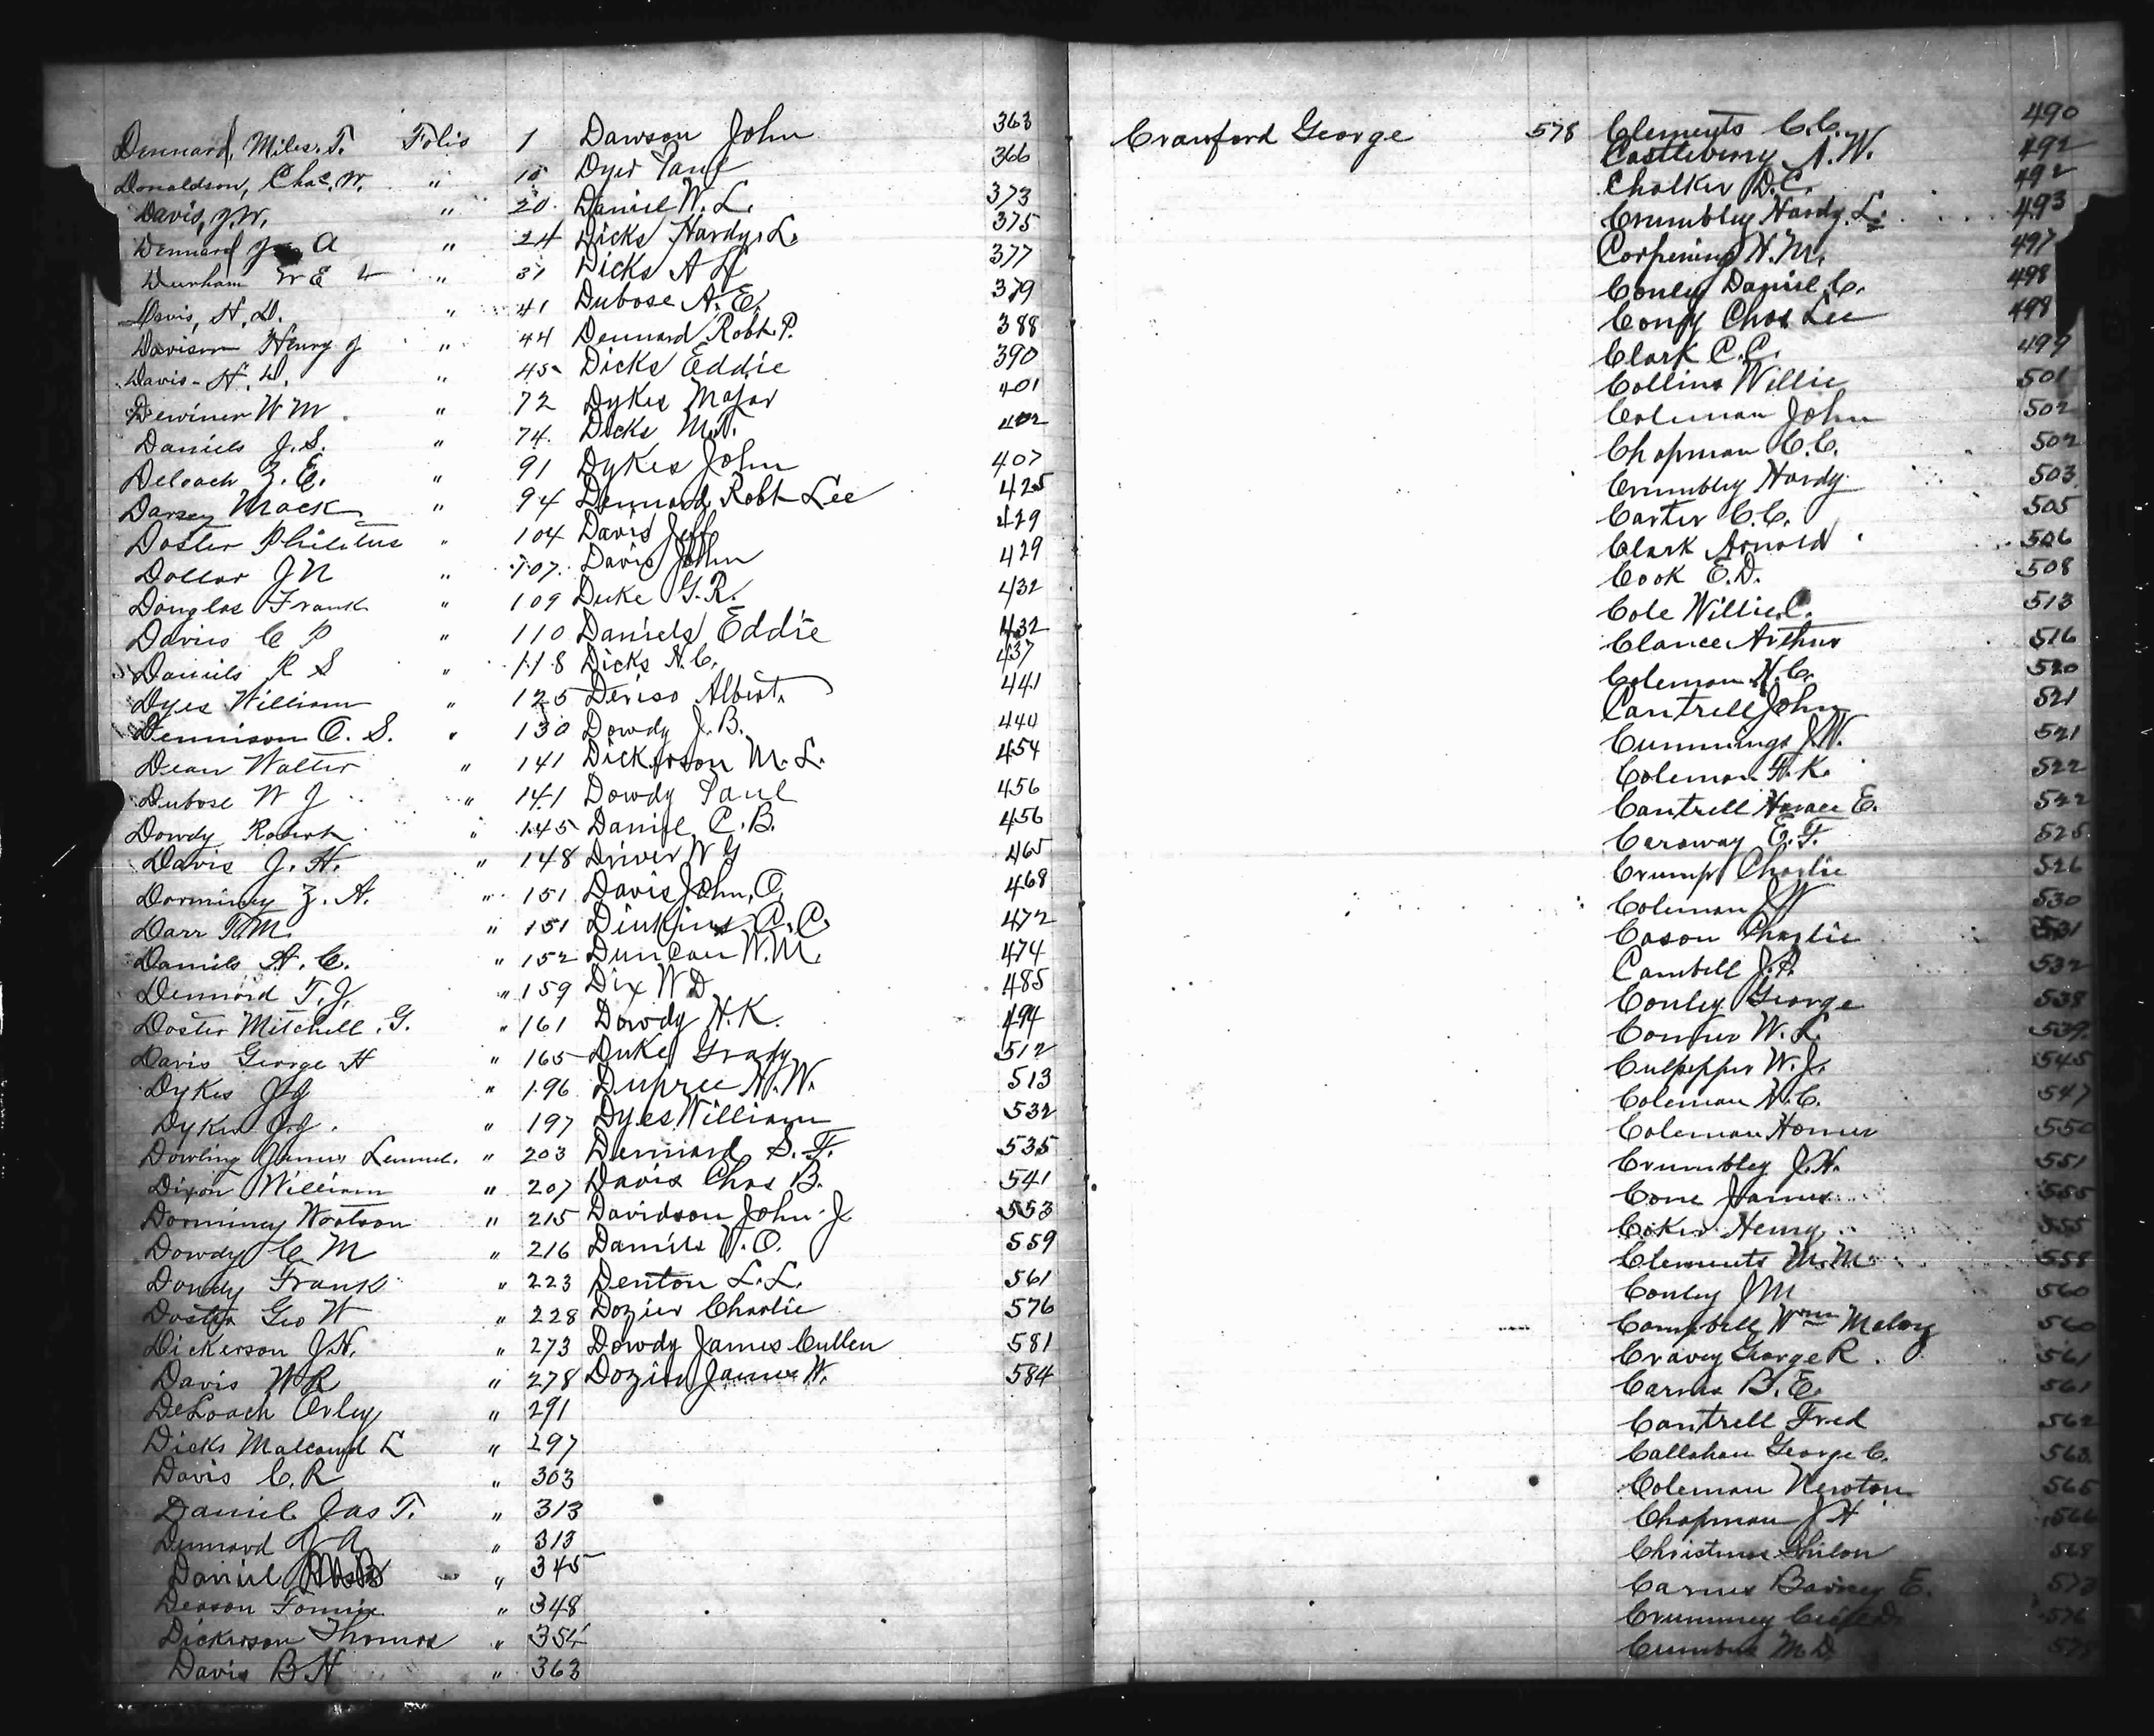 Dennard, Miles. T. Folio 1
Donaldson, Chas. W. " 15
Davis, J.W. " 20
Dennard J A " 24
Durham W E " 31
Davis, H. D. " 41
Davison Henry J " 44
Davis - H. D. " 45
Dewiner W M " 72
Daniels J. S. " 74
Deloach Z. E. " 91
Darsey Mack " 94
Doster Philitus " 104
Dollar J N " 107
Douglas Frank " 109
Davis C P " 110
Daniels R S " 118
Dyes William " 125
Dennison O. S. " 130
Dean Walter " 141
Dubose W J " 141
Dowdy Roark " 145
Davis J. H. " 148
Dorminey Z. A. " 151
Darr T.M. " 151
Daniels H. C. " 152
Dennord T. J. " 159
Doster Mitchell. G. " 161
Davis George H " 165
Dykes J J " 196
Dykes J. J. " 197
Dowling James Lemuel. " 203
Dixon William " 207
Dorminey Wootson " 215
Dowdy C M " 216
Dowdy Frank " 223
Doster Geo W " 228
Dickerson J.H. " 273
Davis W R " 278
DeLoach Orley " 291
Dicks Malcomb L " 297
Davis C. R " 303
Daniel Jas T. " 313
Dennard J A " 313
Daniel " 345
Deason Tommie " 348
Dickerson Thomas " 354
Davis B H " 363
Dawson John 363
Dyer Paul 366
Daniel W. L. 373
Dicks Hardy. L. 375
Dicks A L 377
Dubose A. E. 379
Dennard Robt. P. 388
Dicks Eddie 390
Dykes Major 401
Dicks M.T. 402
Dykes John 407
Dennard Robt Lee 425
Davis Jeff 429
Davis John 429
Duke G. R. 432
Daniels Eddie 432
Dicks N. C. 437
Deriso Albert. 441
Dowdy J. B. 444
Dickerson M. L. 454
Dowdy Paul 456
Daniel C. B. 456
Driver W G 465
Davis John, O. 468
Dinkins C. C. 472
Duncan W. M. 474
Dix W D 485
Dowdy H. K. 494
Duke Grady 512
Dupree N. W. 513
Dyes William 532
Dennard S. F. 535
Davis Chas B. 541
Davidson John J. 553
Daniels W. O. 559
Denton L. L. 561
Dozier Charlie 576
Dowdy James Cullen 581
Dozier James W. 584
Crawford George 578
Clements C. C. 490
Castleberry A. W. 492
Chalker D. C. 492
Crumbley Hardy L. 493
Corpening H. M. 497
Conley Daniel C. 498
Cony Chas Lee 498
Clark C. C. 499
Collins Willie 501
Coleman John 502
Chapman C. C. 502
Crumbley Hardy 503
Carter C. C. 505
Clark Arnold 506
Cook E. D. 508
Cole Willie C. 513
Clance Arthur 516
Coleman H. C. 520
Cantrell John 521
Cummings J. W. 521
Coleman H. K. 522
Cantrell Horace E. 522
Caraway E. F. 525
Crump Charlie 526
Coleman J W 530
Cason Charlie 531
Cambell J. A. 532
Conley George 538
Conner W. L. 539
Culpepper W. J. 545
Coleman H. C. 547
Coleman Homer 550
Crumbley J. H. 551
Cone James 555
Coker Henry 555
Clements M. M. 558
Conley J M 560
Campbell Wm Meloy 560
Cravey George R. 561
Carnes B. E. 561
Cantrell Fred 562
Callahan George C. 563
Coleman Newton 565
Chapman J H 566
Christmas 568
Carnes Barney E. 573
Crummey 576
M. D.